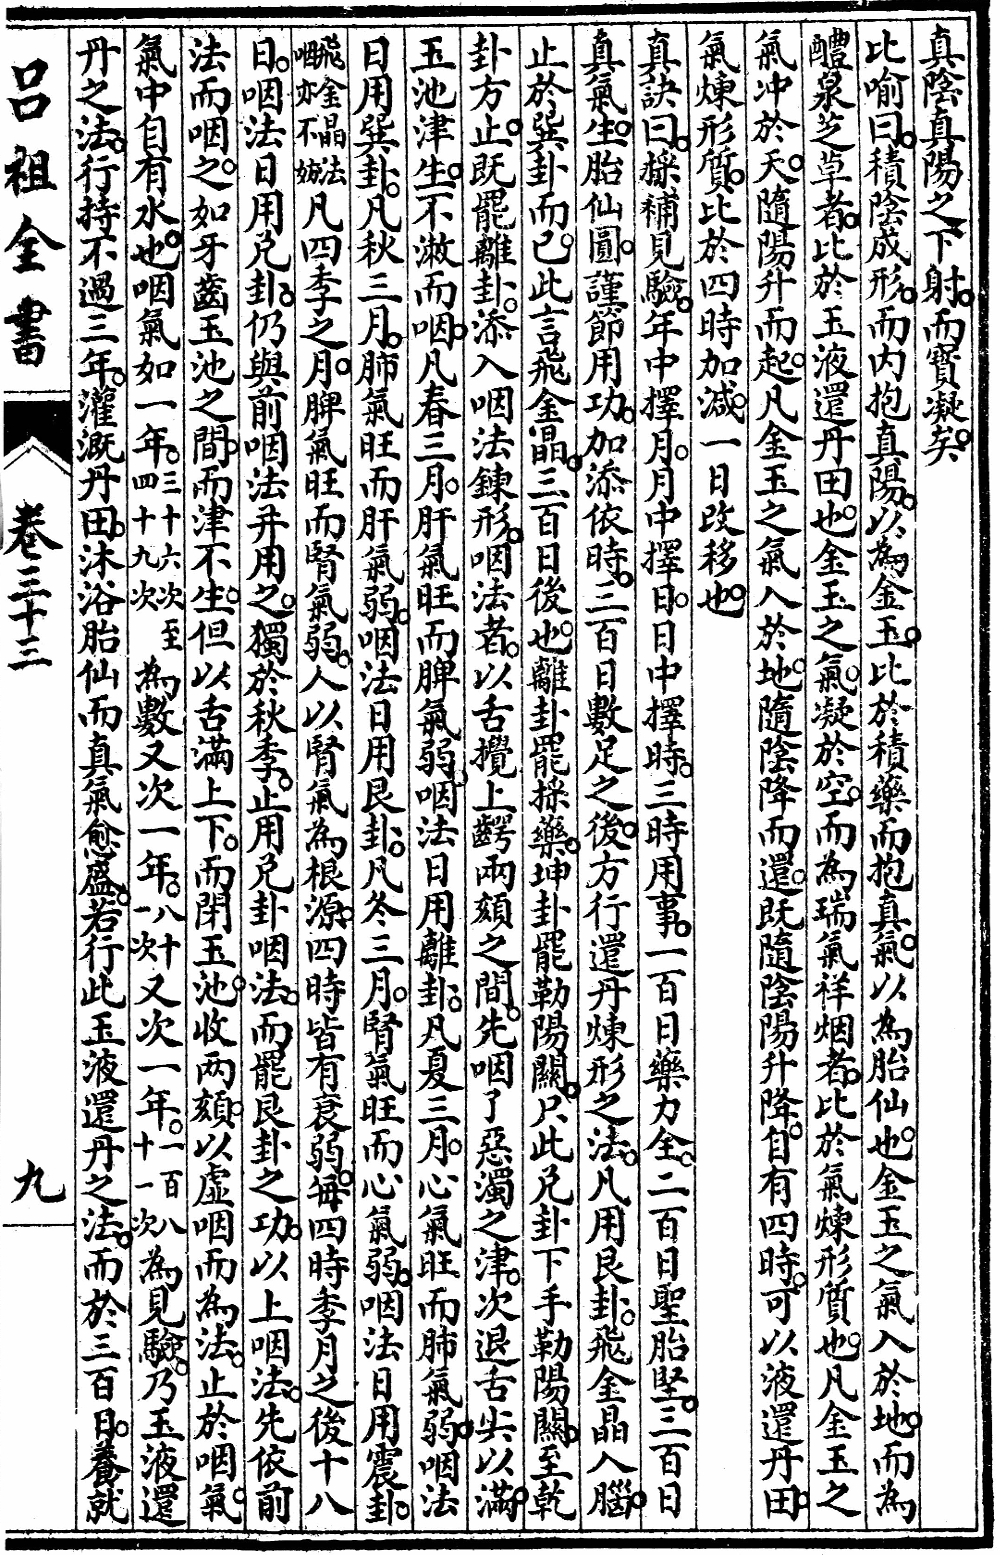 真陰真陽之下射而寳凝矣
比喻曰積陰成形而内抱真陽以為金玉比於積藥而抱真氣以為胎仙也金玉之氣入於地而為
醴泉芝草者比於玉液還丹田也金玉之氣凝於空而為瑞氣祥烟者比於氣煉形質也凡金玉之
氣冲於天隨陽升而起凡金玉之氣入於地隨陰降而還既隨陰陽升降自有四時可以液還丹田
氣煉形質比於四時加減一日改移也
真訣曰採補見驗年中擇月月中擇日日中擇時三時用事一百日藥力全二百日聖胎堅三百日
真氣生胎仙圓謹節用功加添依時三百日數足之後方行還丹煉形之法凡用艮卦飛金晶入腦
止於巽卦而已此言飛金晶三百日後也離卦罷採藥坤卦罷勒陽關只此兌卦下手勒陽關至乾
卦方止既罷離卦添入咽法鍊形咽法者以舌攪上齶兩頦之間先咽了惡濁之津次退舌尖以滿
玉池津生不漱而咽凡春三月肝氣旺而脾氣弱咽法日用離卦凡夏三月心氣旺而肺氣弱咽法
日用巽卦凡秋三月肺氣旺而肝氣弱咽法日用艮卦凡冬三月腎氣旺而心氣弱咽法日用震卦
飛金晶法咽亦不妨凡四季之月脾氣旺而腎氣弱人以腎氣為根源四時皆有衰弱每四時季月之後十八
日咽法日用兌卦仍與前咽法并用之獨於秋季止用兌卦咽法而罷艮卦之功以上咽法先依前
法而咽之如牙齒玉池之間而津不生但以舌滿上下而閉玉池收两頦以虛咽而為法止於咽氣
氣中自有水也咽氣如一年三十六次至四十九次為數又次一年八十一次又次一年一百八十一次為見驗乃玉液還
丹之法行持不過三年灌溉丹田沐浴胎仙而真氣愈盛若行此玉液還丹之法而於三百日養就
吕祖全書
卷三十三
九